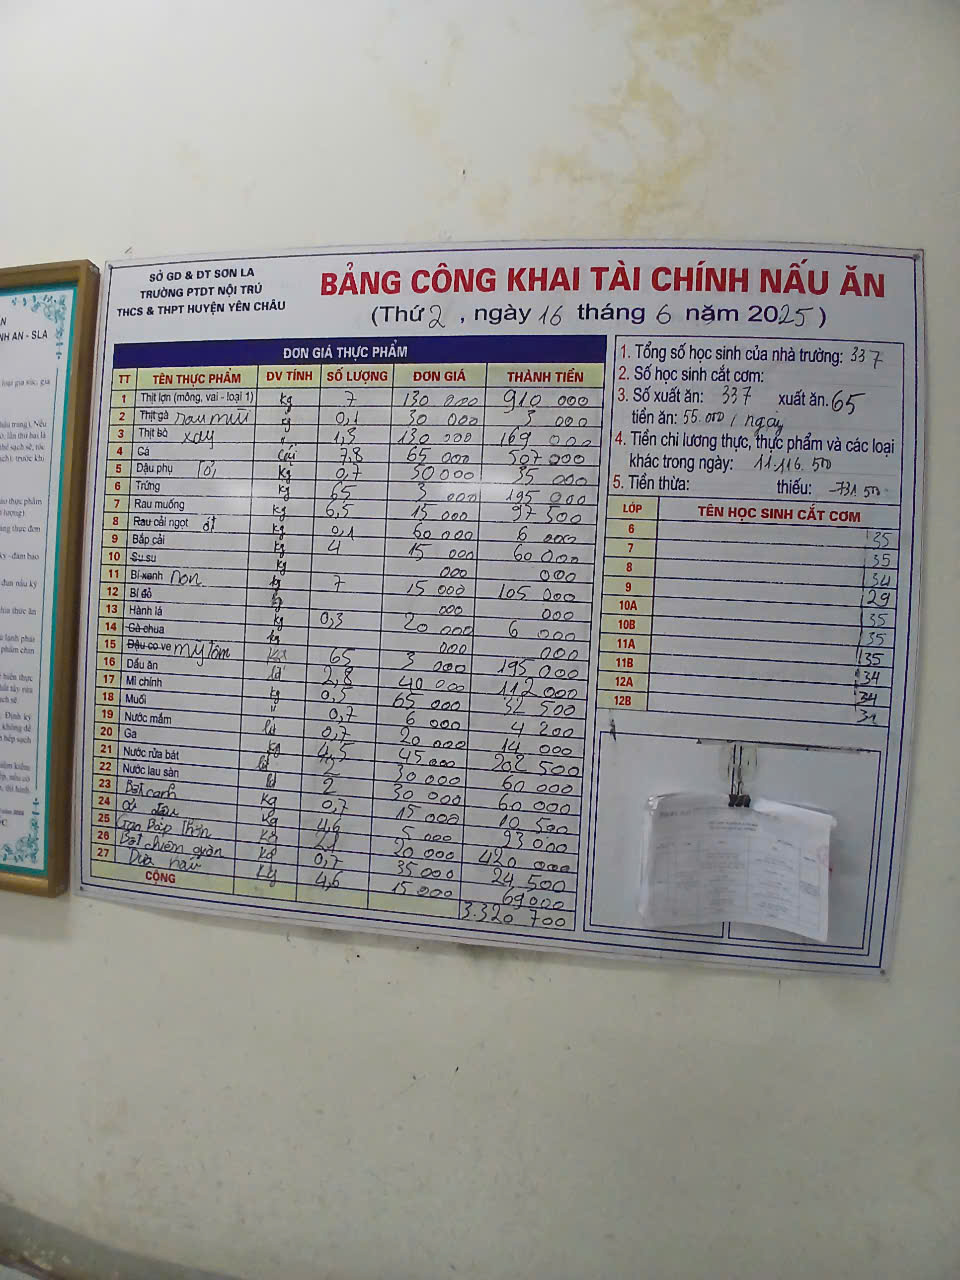 SỞ GD & ĐT SƠN LA
TRƯỜNG PTDT NỘI TRÚ
THCS & THPT HUYỆN YÊN CHÂU
BẢNG CÔNG KHAI TÀI CHÍNH NẤU ĂN
(Thứ 2, ngày 16 tháng 6 năm 2025)
ĐƠN GIÁ THỰC PHẨM
TT TÊN THỰC PHẨM ĐV TÍNH SỐ LƯỢNG ĐƠN GIÁ THÀNH TIỀN
1 Thịt lợn (mông, vai - loại 1) kg 7 130 000 910 000
2 Thịt gà rau mùi kg 0,1 30 000 3 000
3 Thịt bò xay 1,3 130 000 169 000
4 Cá 7,8 65 000 507 000
5 Đậu phụ kg 0,7 50 000 35 000
6 Trứng 65 3 000 195 000
7 Rau muống kg 6,5 15 000 97 500
8 Rau cải ngọt ớt 0,1 60 000 6 000
9 Bắp cải kg 4 15 000 60 000
10 Su su kg 000 000
11 Bí xanh non kg 7 15 000 105 000
12 Bí đỏ 000 000
13 Hành lá kg 0,3 20 000 6 000
14 Cà chua kg 000 000
15 Đậu cove mỳ tôm 65 3 000 195 000
16 Dầu ăn lít 2,8 40 000 112 000
17 Mì chính kg 0,5 65 000 32 500
18 Muối 0,7 6 000 4 200
19 Nước mắm lít 0,7 20 000 14 000
20 Ga kg 4,5 45 000 202 500
21 Nước rửa bát lít 2 30 000 60 000
22 Nước lau sàn lít 30 000 60 000
23 Bột canh kg 0,7 15 000 10 500
24 kg 5 000 93 000
25 kg 21 20 000 420 000
26 Bột chiên giòn kg 0,7 35 000 24 500
27 Dưa kg 4,6 15 000 69 000
CỘNG 3.320 700
1. Tổng số học sinh của nhà trường: 337
2. Số học sinh cắt cơm:
3. Số xuất ăn: 337 xuất ăn. 65
tiền ăn: 55.000 / ngày
4. Tiền chi lương thực, thực phẩm và các loại
khác trong ngày: 11.116.500
5. Tiền thừa: thiếu: -731 500
LỚP TÊN HỌC SINH CẮT CƠM
6 35
7 35
8 34
9 29
10A 35
10B 35
11A 35
11B 34
12A 34
12B 31